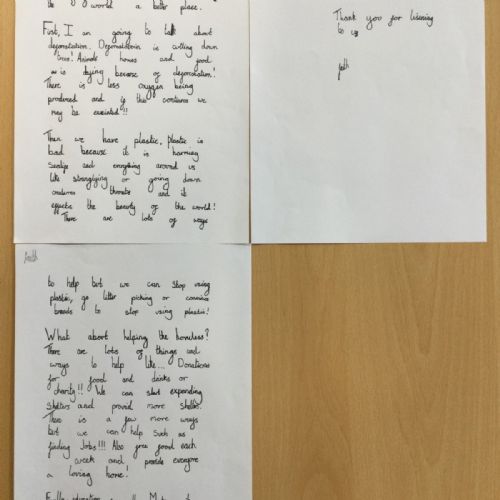 the world a better place.
First, I am going to talk about
deforestation. Deforestatoin is cutting down
trees! Animals homes and food
is dying because of deforestation!
There is less oxygen being
produced and if this continues we
may be exintted!!
Then we have plastic. Plastic is
bad because it is harming
Sealife and everything around us
like stranglying or going down
creatures throats and it
effects the beauty of the world!
There are lots of ways
Thank you for listening
to us
faith
faith
to help but we can stop using
plastic, go litter picking or convince
breads to stop using plastic!
What about helping the homeless?
There are lots of things and
ways to help like... Donations
for food and drinks or
charity!! We can start expanding
Shelters and provid more shelts.
There is a few more ways
but we can help such as
finding Jobs!!! Also free food each
week and provide everyone
a loving home!
education